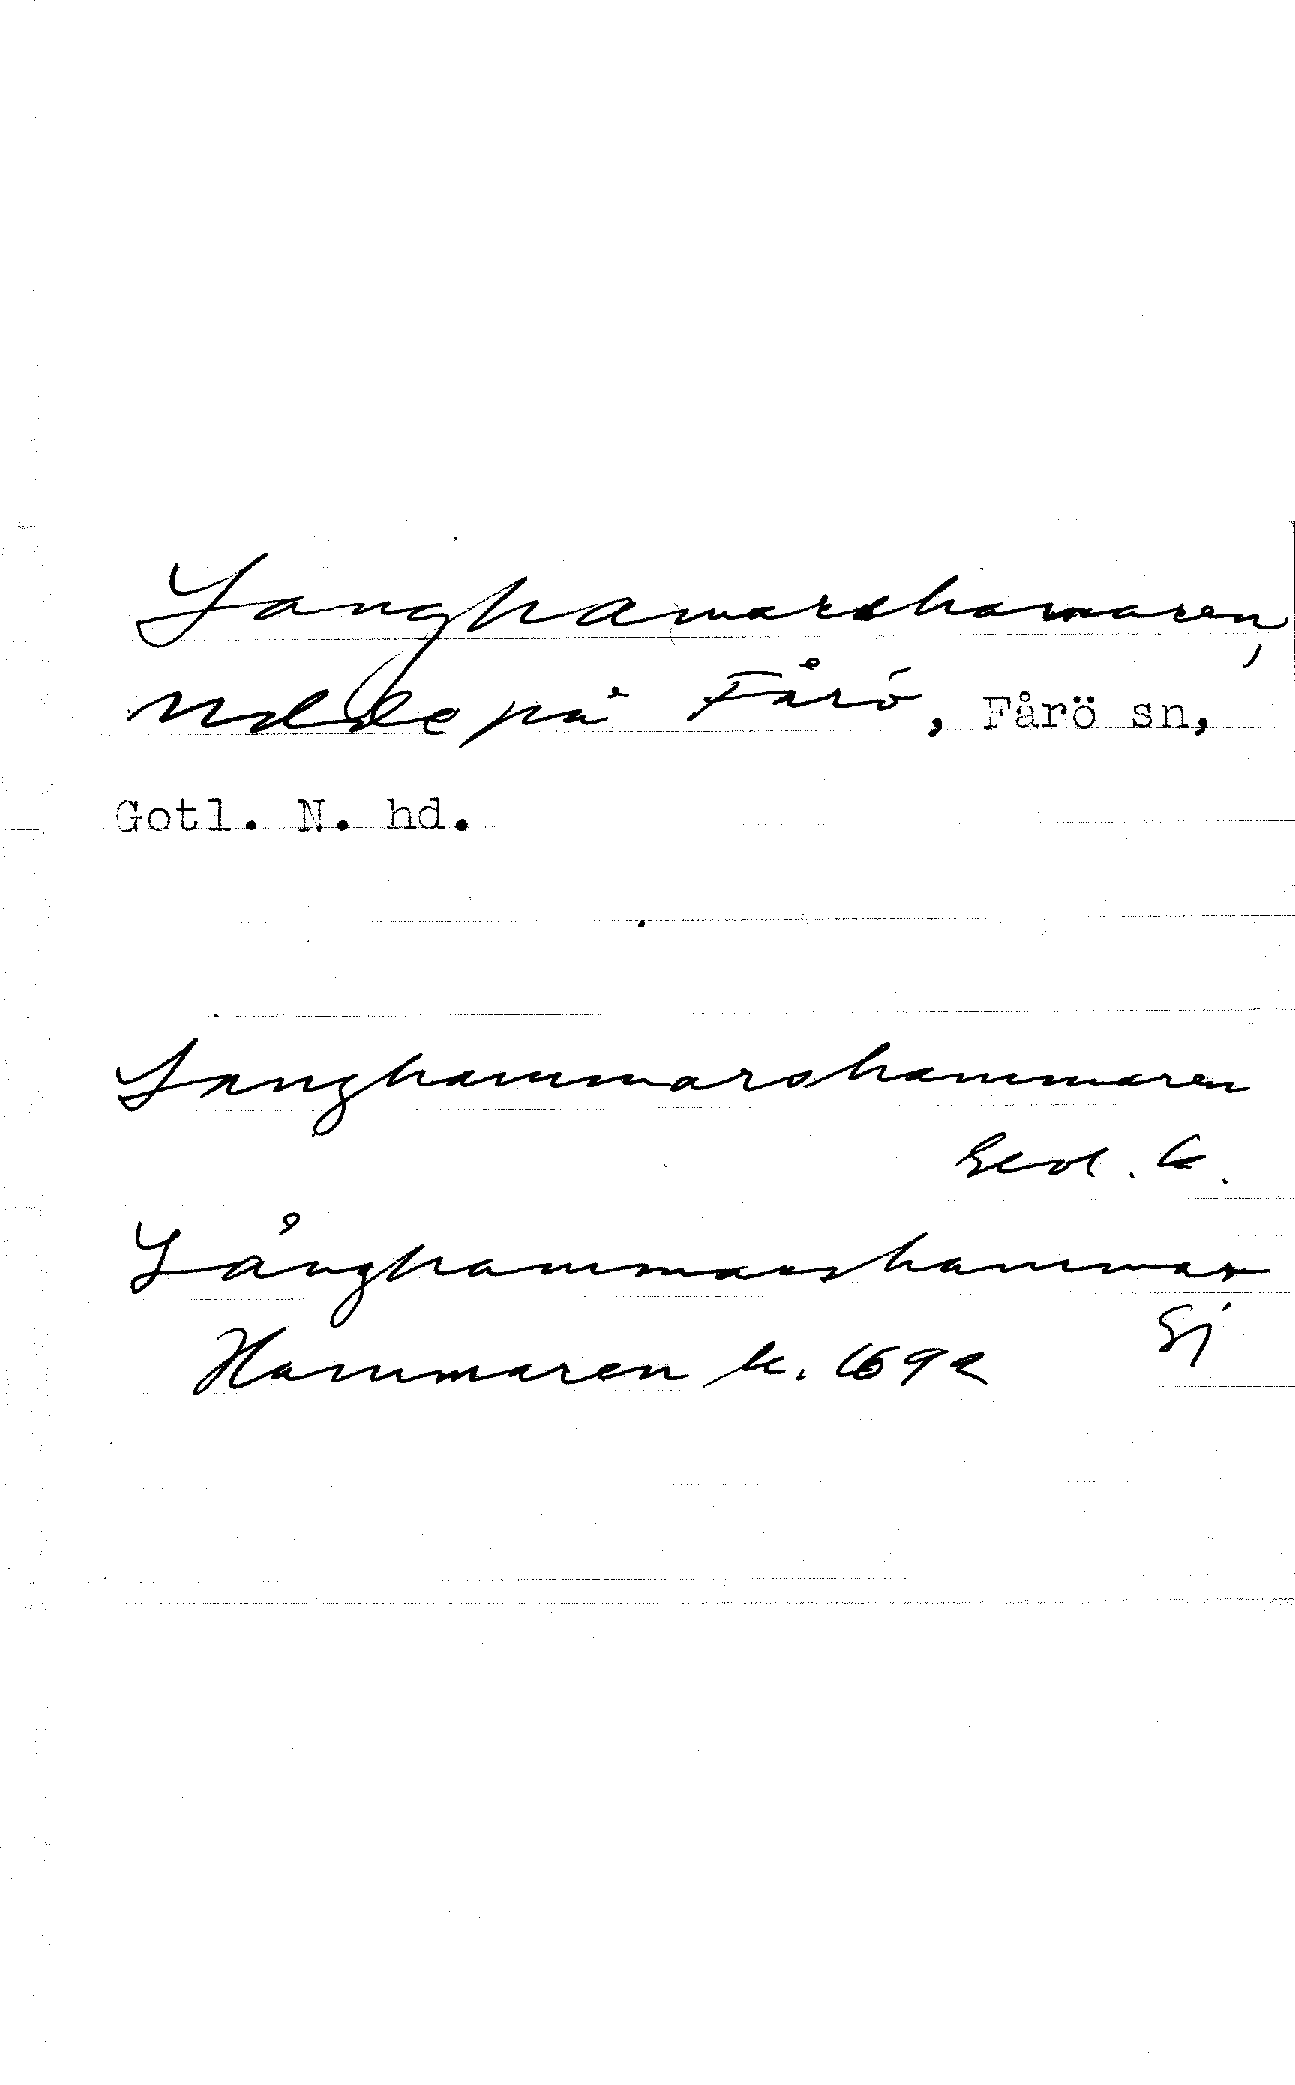 Langhamarshamaren,
udde på Fårö, Fårö sn,
Gotl. N. hd.
Langhammarshammaren
Geol. k.
Långhammarshammar
Sj
Hammaren k. 1692